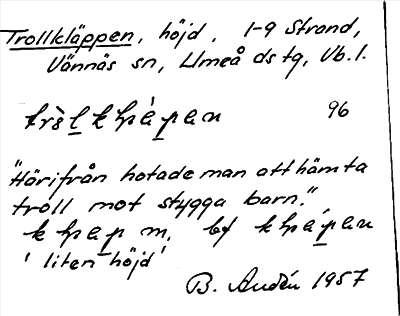 Trollkläppen, höjd, 1-9 Strand,
Vännäs sn, Umeå dstg, Vb. l.
96
"Härifrån hotade man att hämta
troll mot stygga barn."
m. bf
'liten höjd'
B. Audén 1957